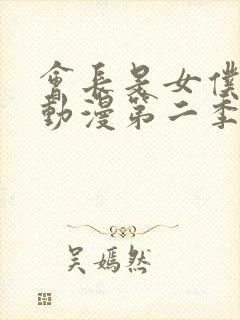 會長是女僕
動漫第二季
吴嫣然